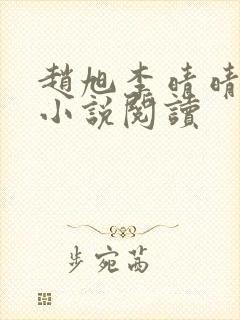 趙旭李晴晴
小說閱讀
步宛茜